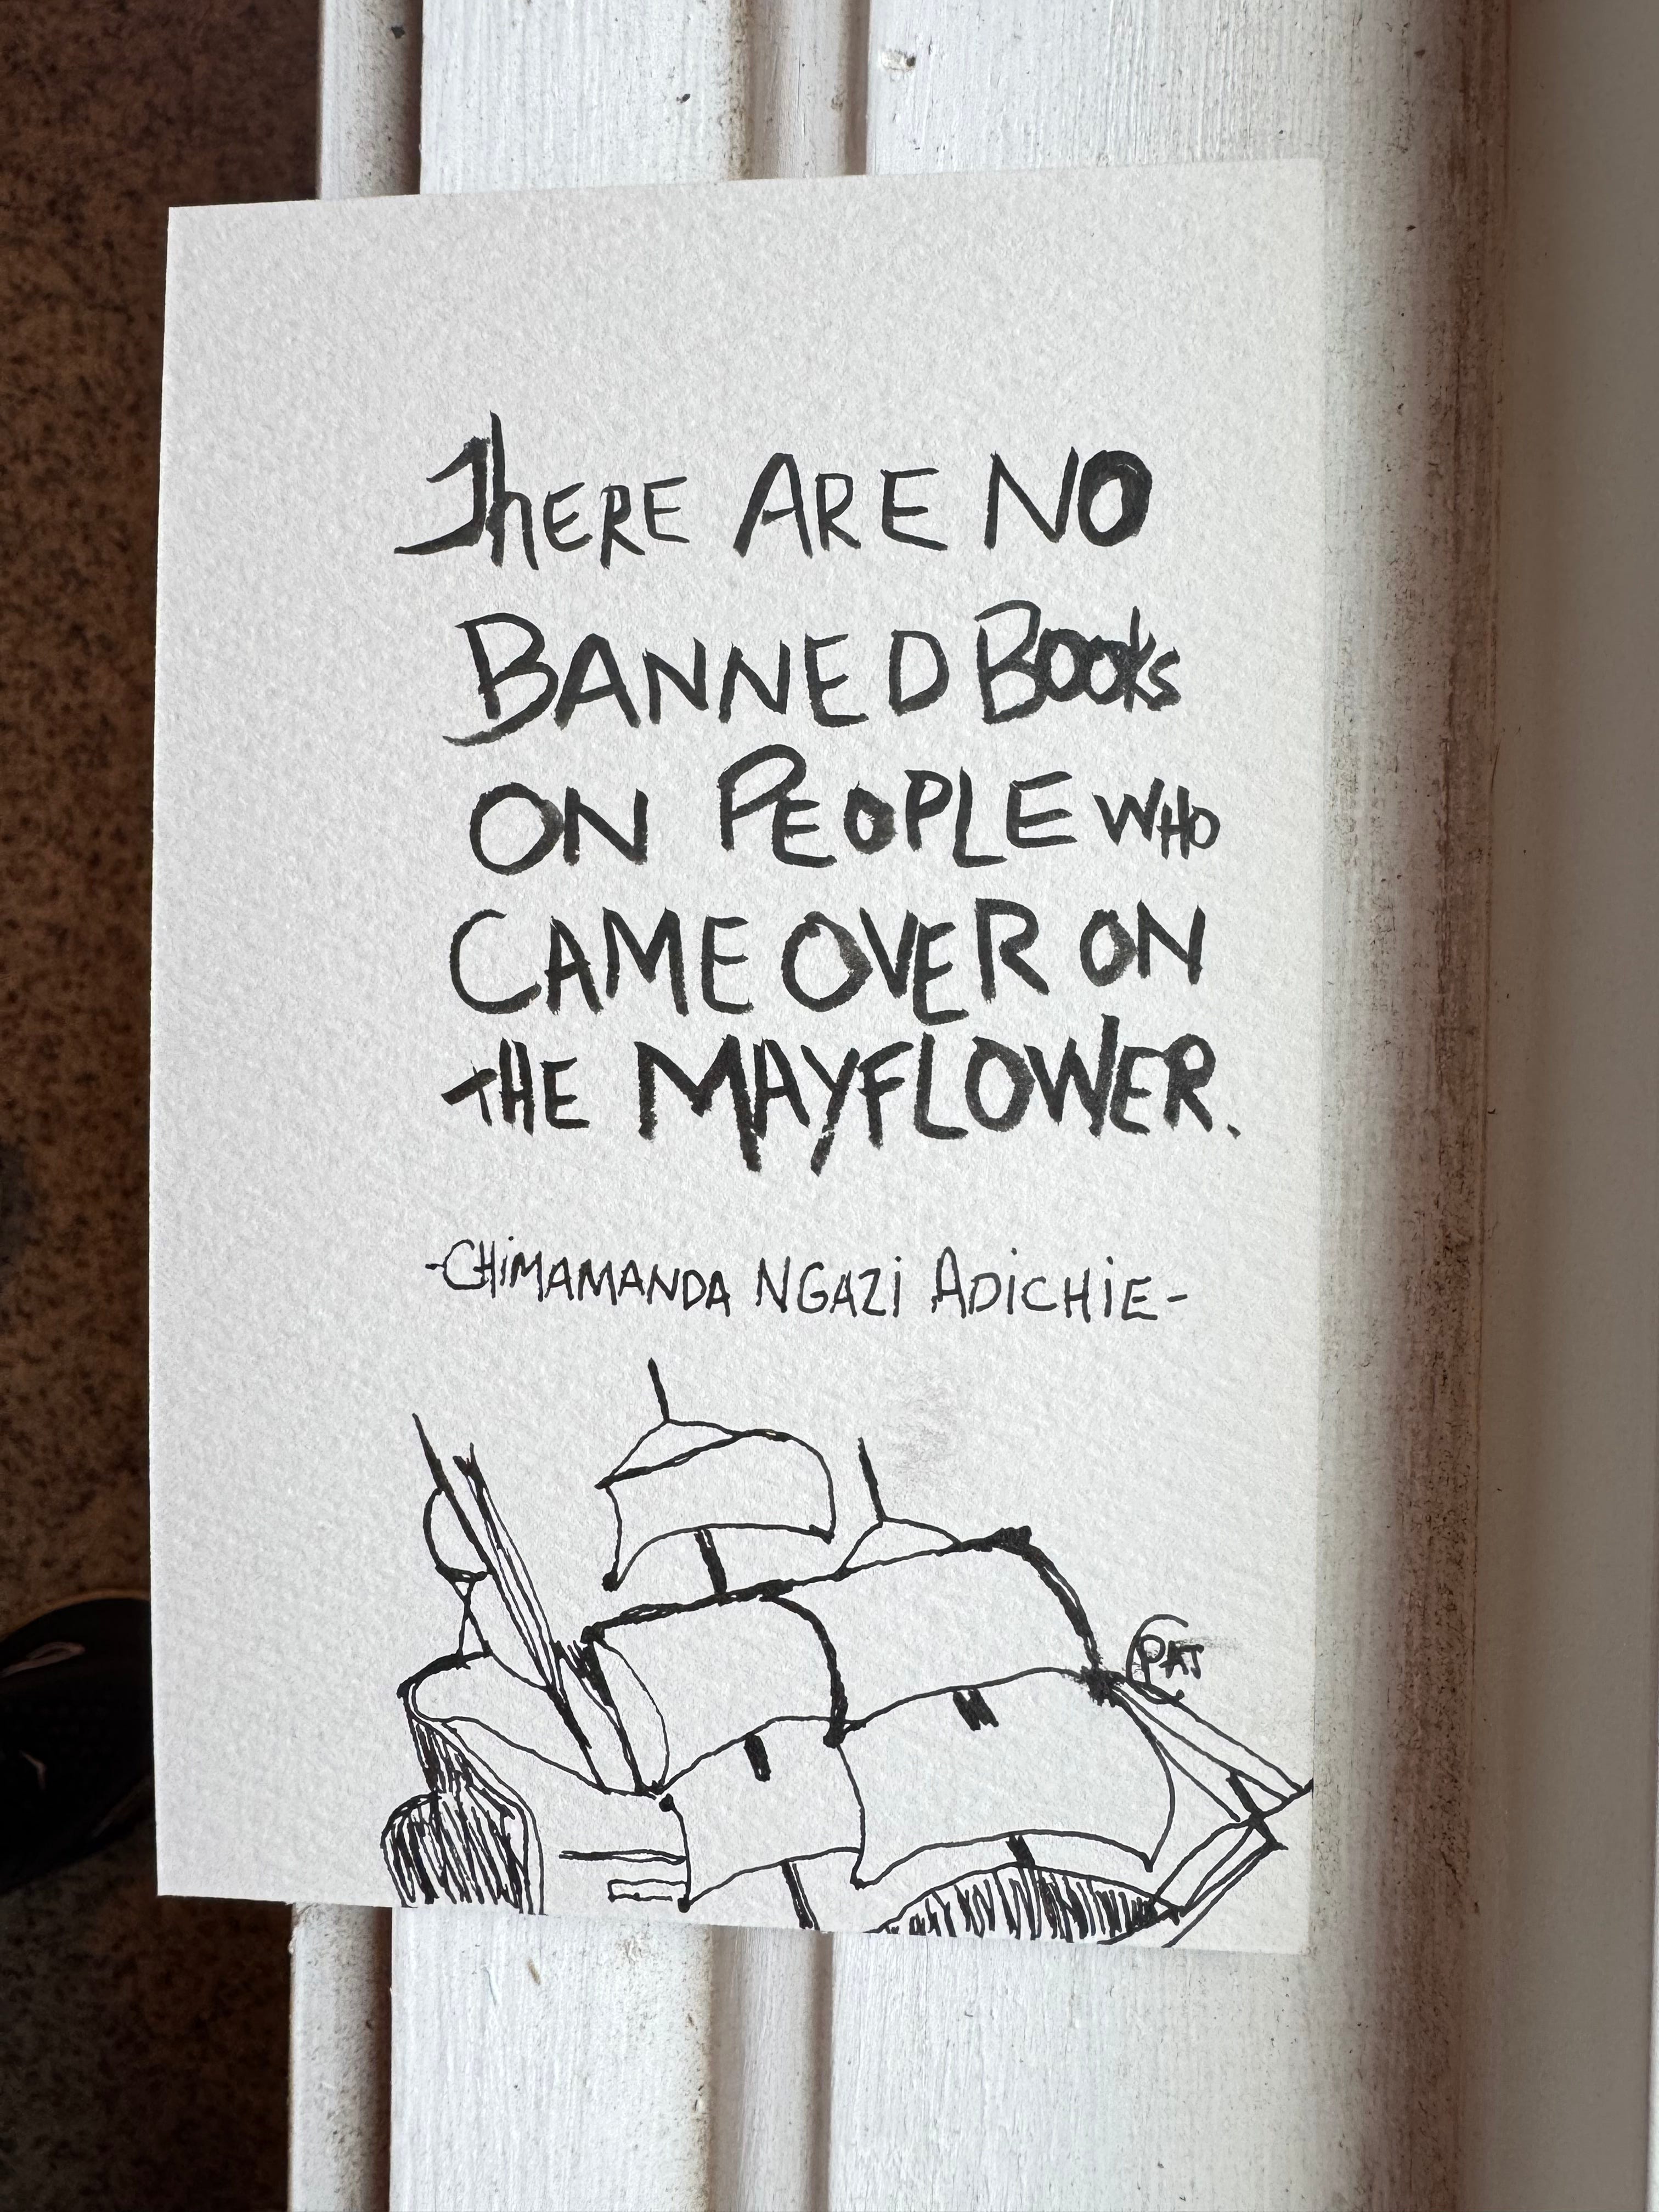 ThERE ARE NO
BANNED BOOks
ON PEOPLE WHO
CAME OVER ON
THE MAYFLOWER.
-CHiMAMANDA NGAZi ADiCHiE-
PAT